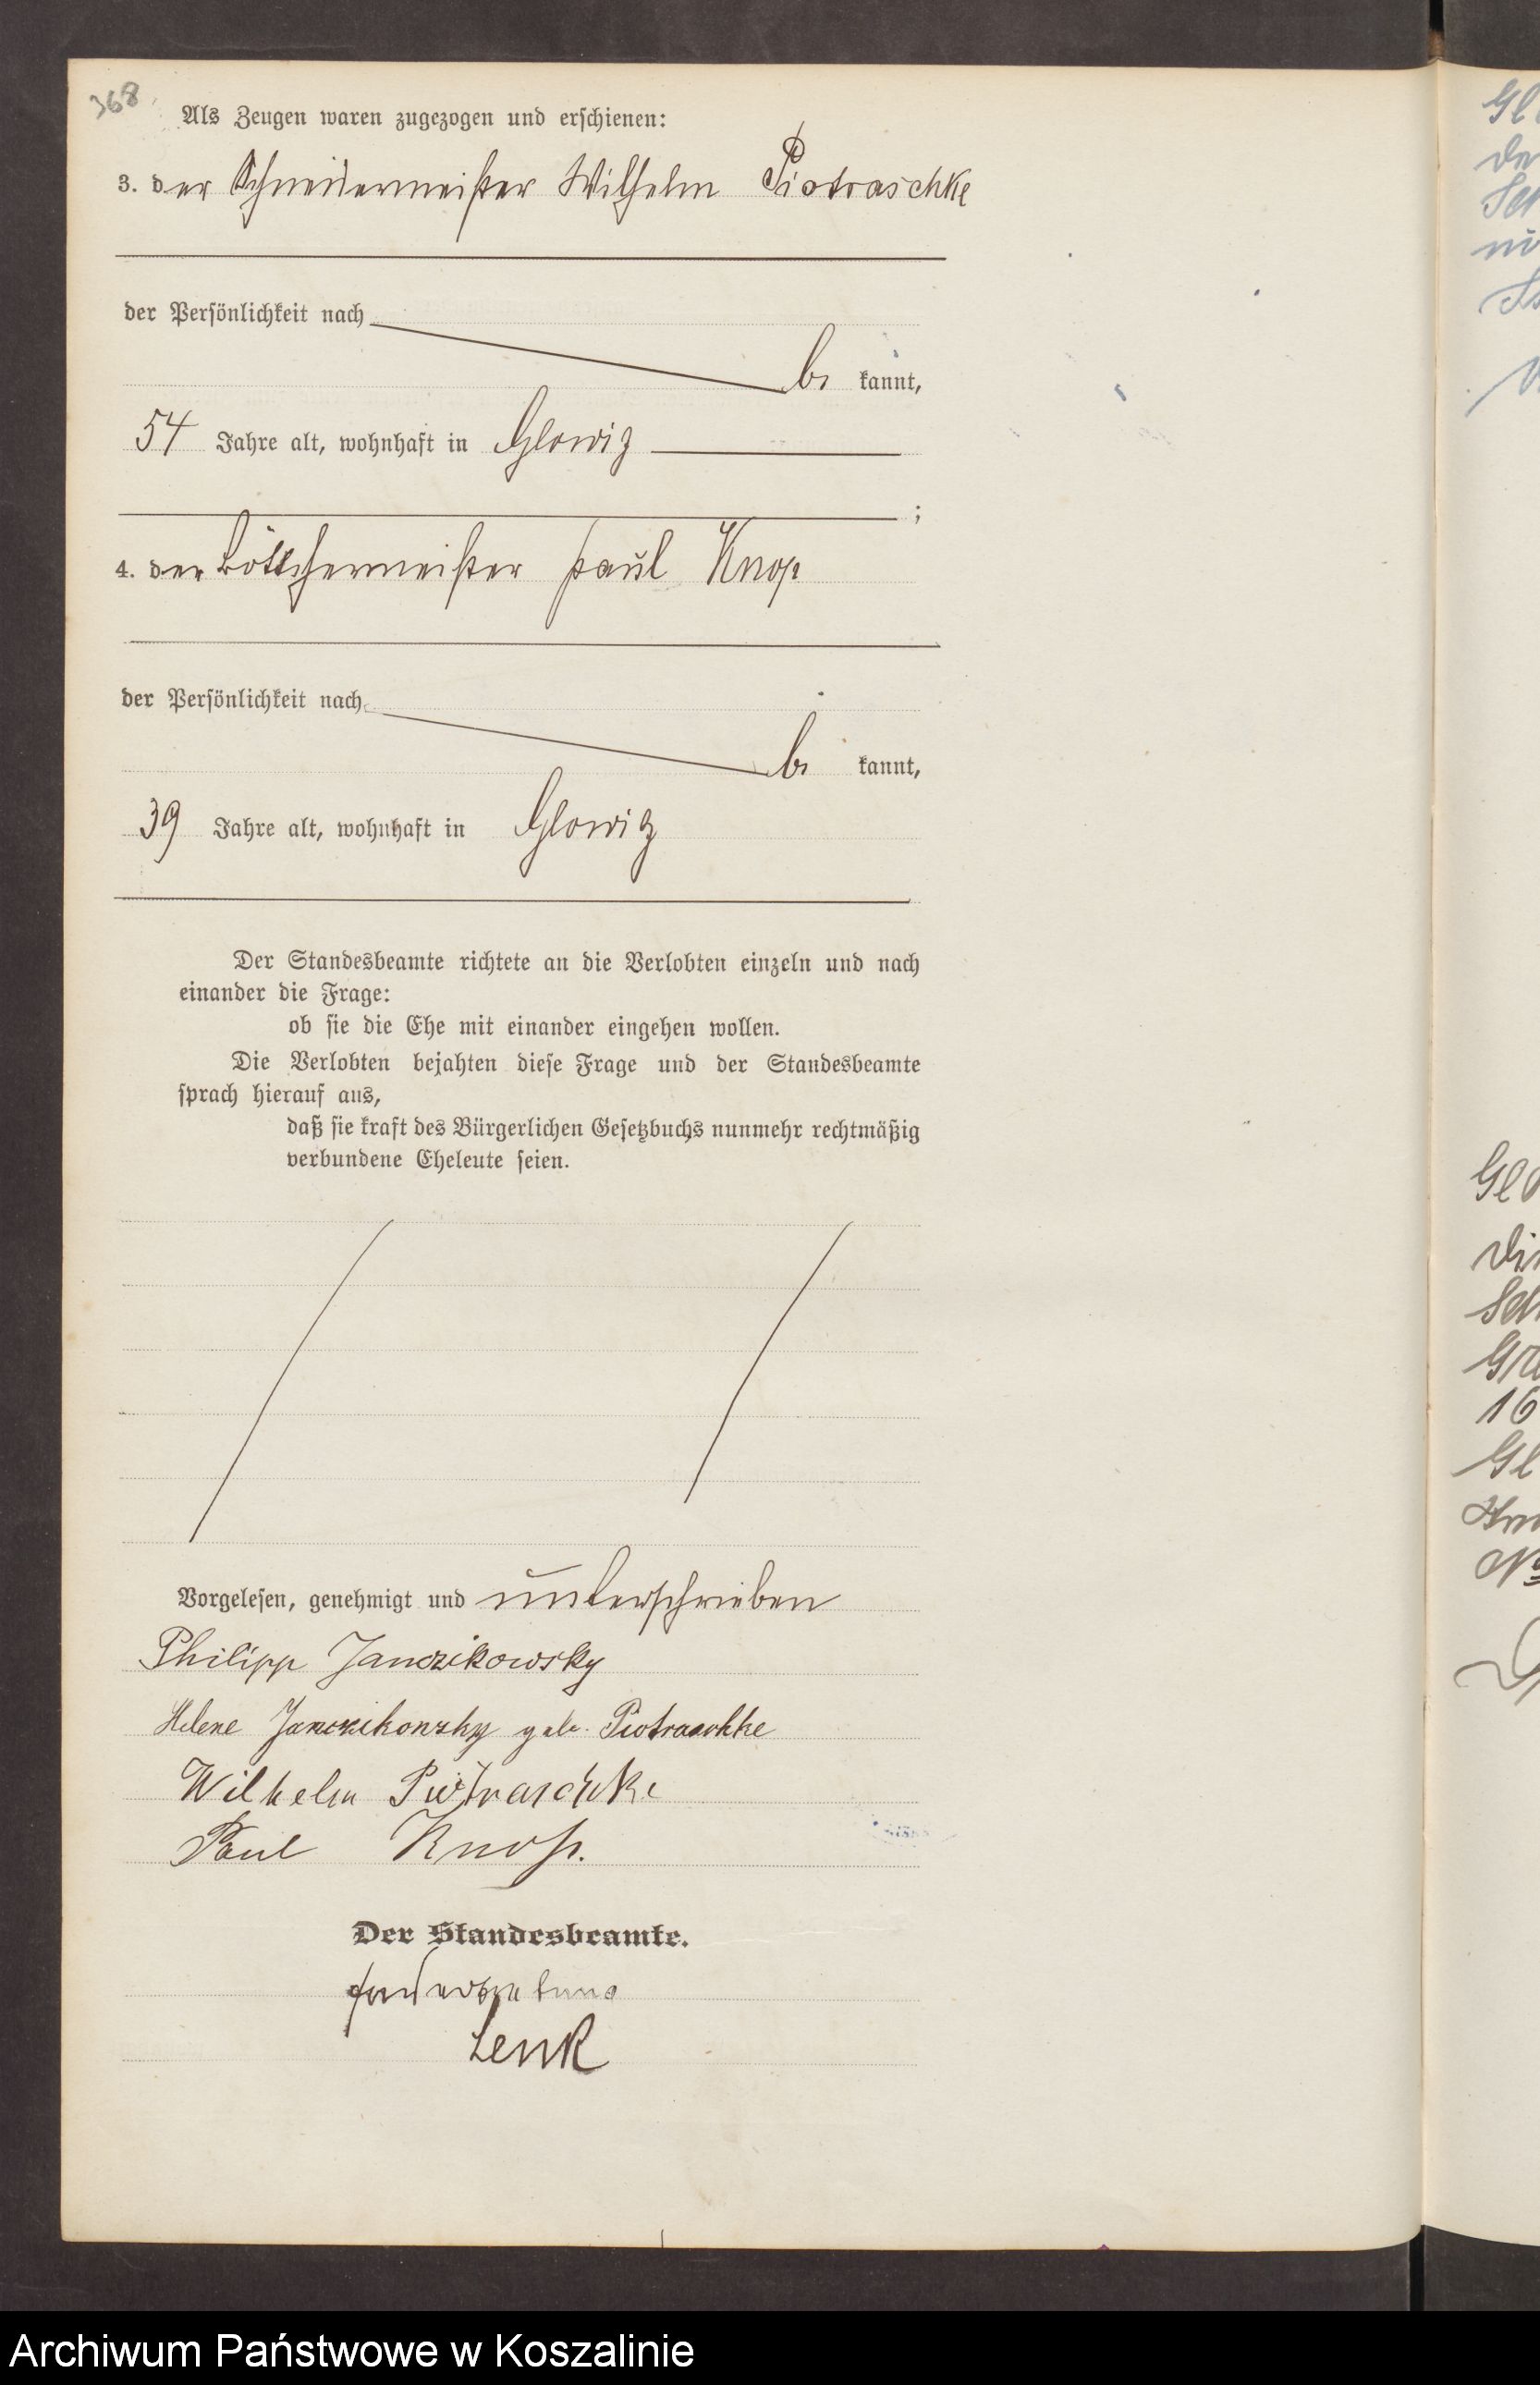 368
Als Zeugen waren zugezogen und erschienen:
3. der Schneidermeister Wilhelm Piotraschke
der Persönlichkeit nach
be kannt,
54 Jahre alt, wohnhaft in Glowitz
;
4. der Böttchermeister Paul Knop
der Persönlichkeit nach
be kannt,
39 Jahre alt, wohnhaft in Glowitz
Der Standesbeamte richtete an die Verlobten einzeln und nach
einander die Frage:
ob sie die Ehe mit einander eingehen wollen.
Die Verlobten bejahten diese Frage und der Standesbeamte
sprach hierauf aus,
daß sie kraft des Bürgerlichen Gesetzbuchs nunmehr rechtmäßig
verbundene Eheleute seien.
Vorgelesen, genehmigt und unterschrieben
Philipp Janczikowsky
Helene Janczikowsky geb. Piotraschke
Wilhelm Piotraschke
Paul Knop.
Der Standesbeamte.
In Vertretung
Lenk
16
Archiwum Państwowe w Koszalinie